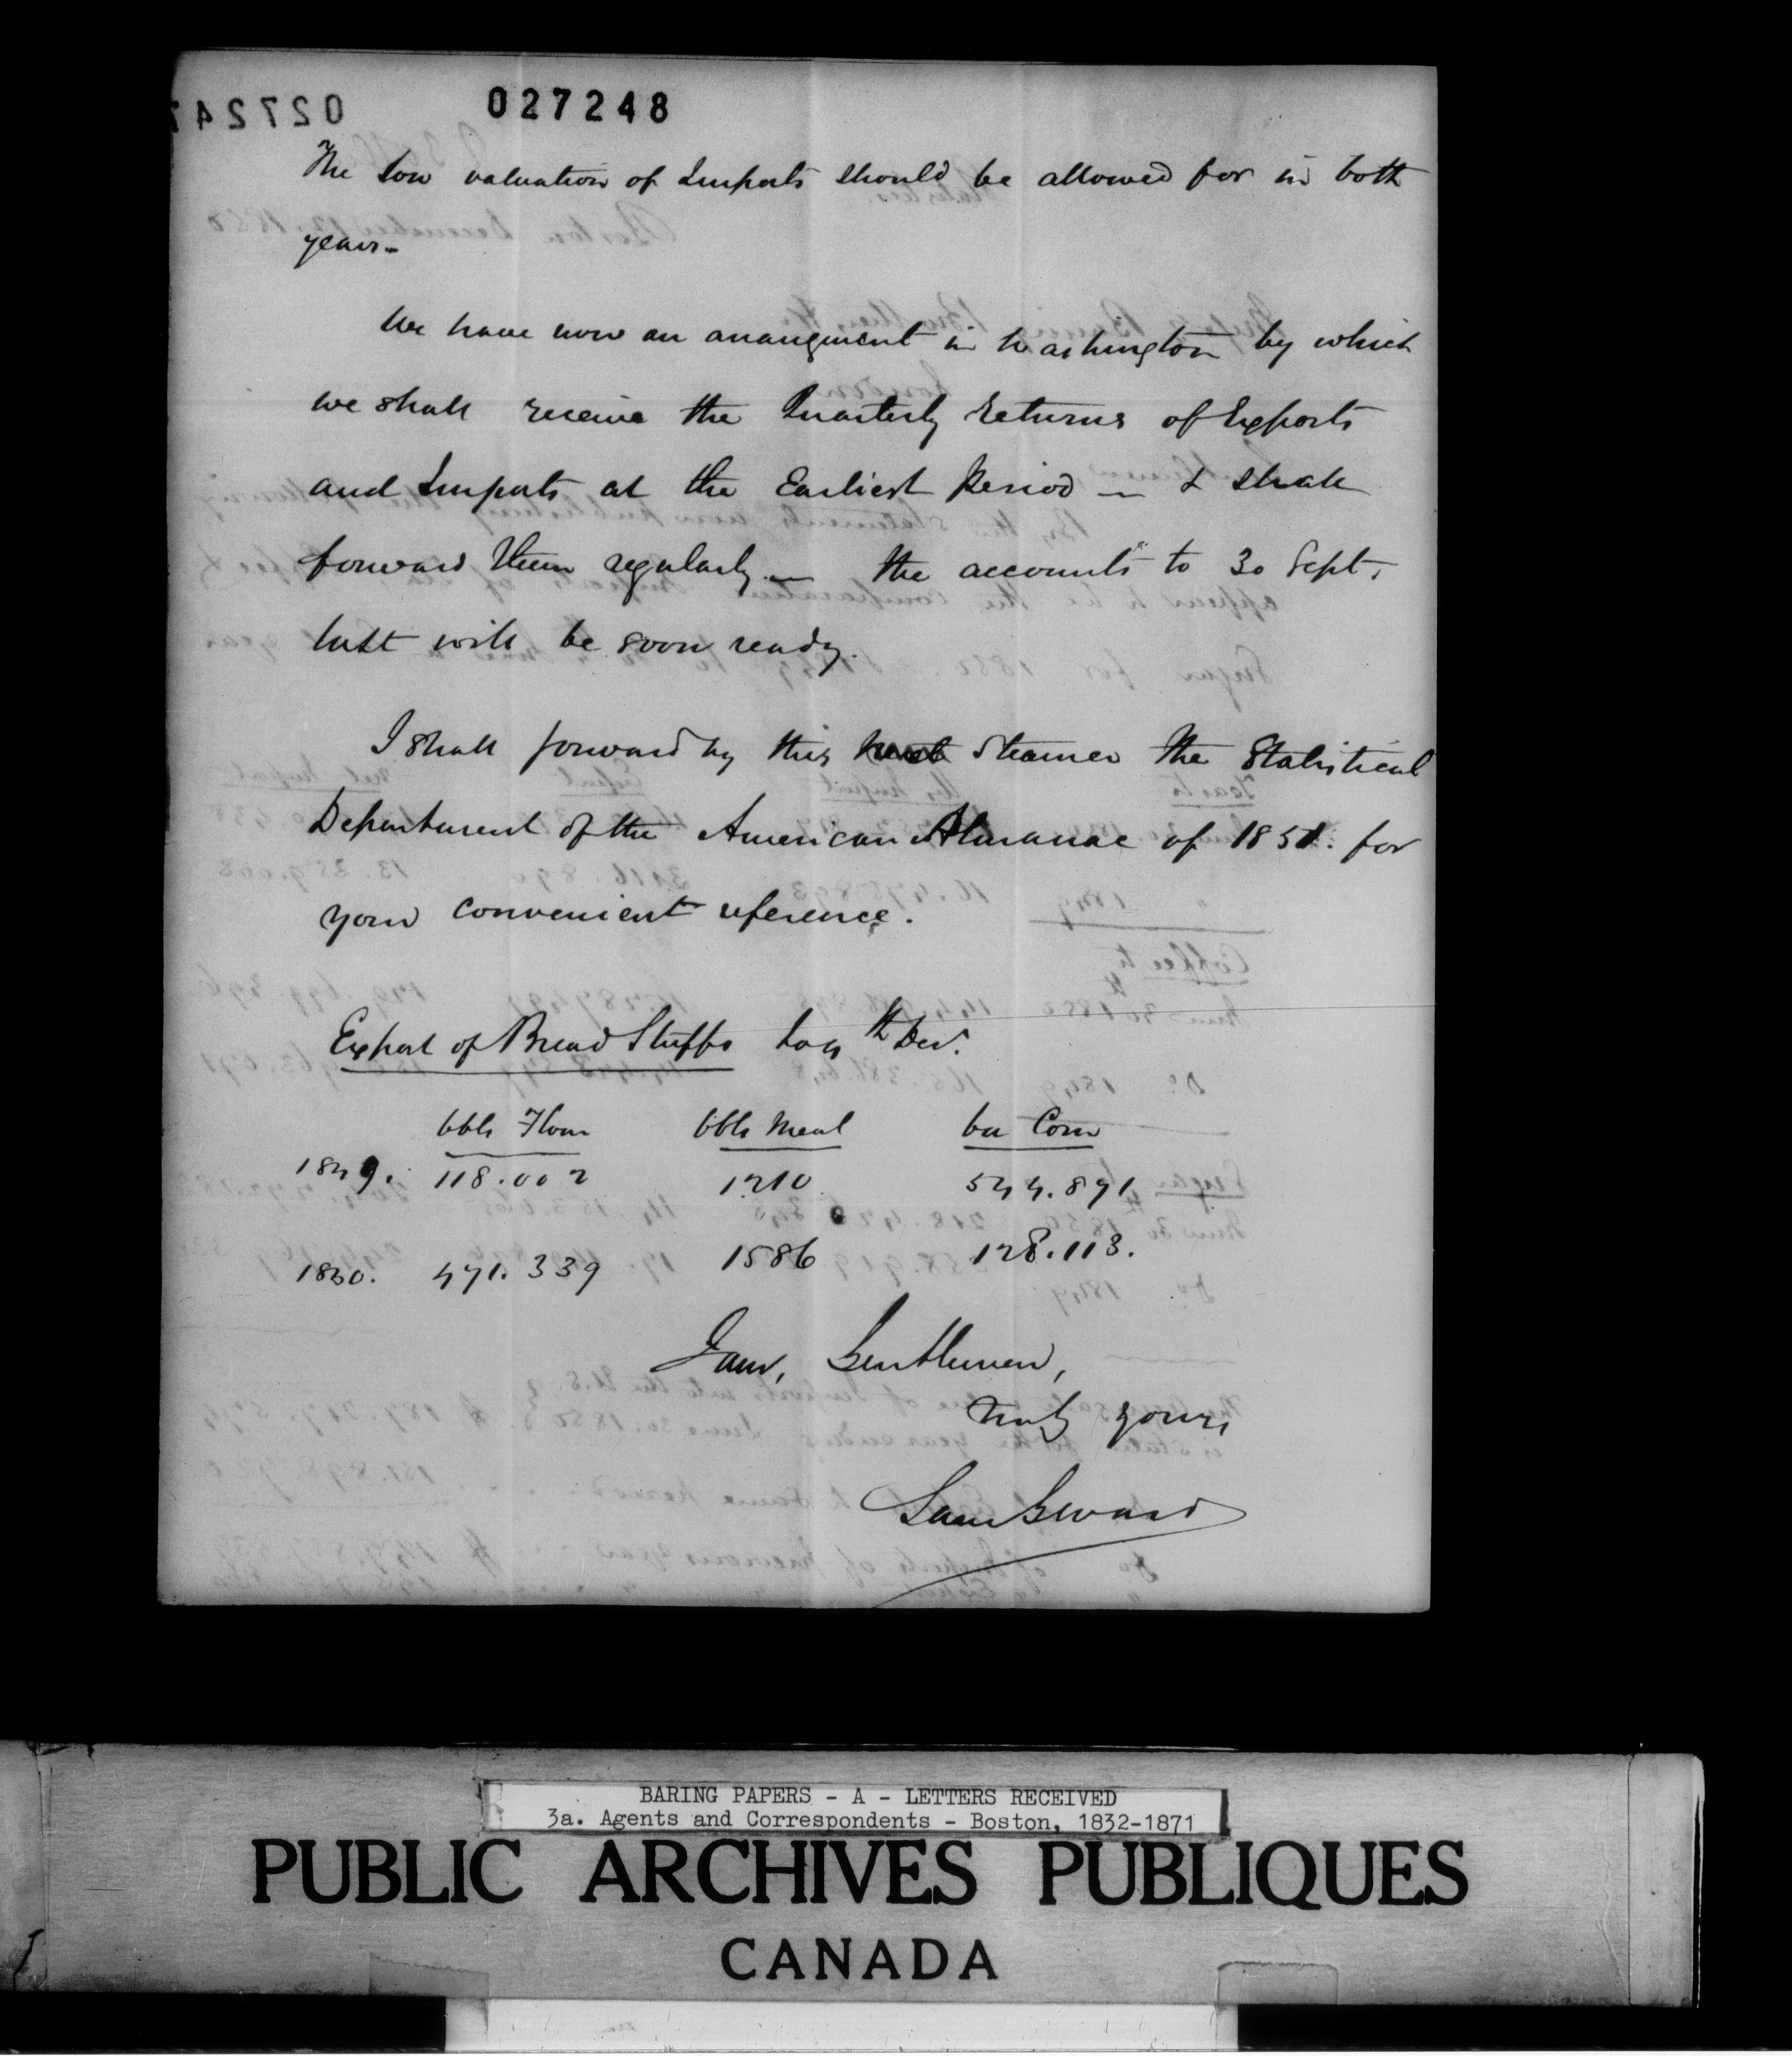 027248
The low valuation of Imports should be allowed for in both
years -
We have now an arrangment in Washington by which
we shall receive the Quarterly returns of Exports
and Imports at the Earliest Period — & shall
forward them regularly — the accounts to 30 Sept.
last will be soon ready.
I shall forward by this steamer the Statistical
Department of the American Almanac of 1851. for
your convenient reference.
Export of Bread Stuffs to 4th Dec.
bbls Flour bbls Meal bu Corn
1849. 118.002 1210 544.891
1850. 471.339 1586 128.113.
I am, Gentlemen,
Truly yours
Sam G Ward
BARING PAPERS - A - LETTERS RECEIVED
3a. Agents and Correspondents - Boston, 1832-1871
PUBLIC ARCHIVES PUBLIQUES
CANADA